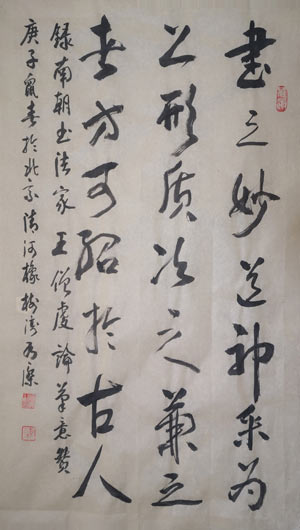 書之妙道神采为
上形质次之兼之
者方可绍於古人
録南朝书法家王僧虔論筆意赞
庚子鼠春於北京清河橡树湾